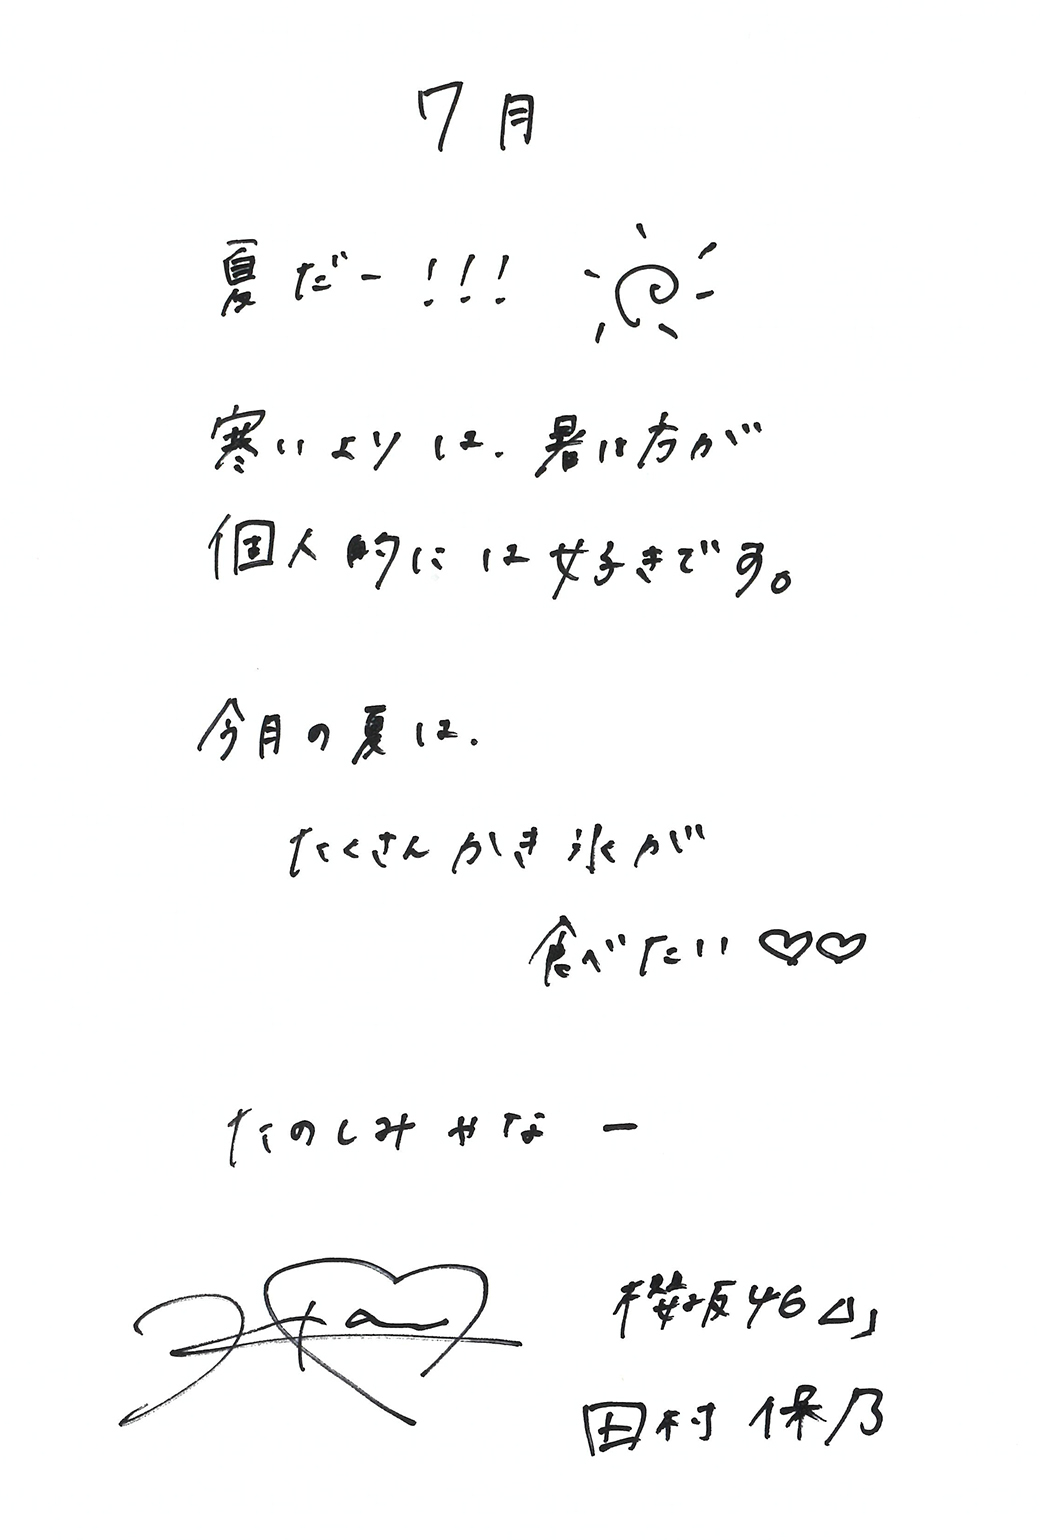 7月
夏だー!!!
寒いよりは、暑い方が
個人的には好きです。
今月の夏は、
たくさんかき氷が
食べたい♡♡
たのしみやなー
櫻坂46
田村保乃